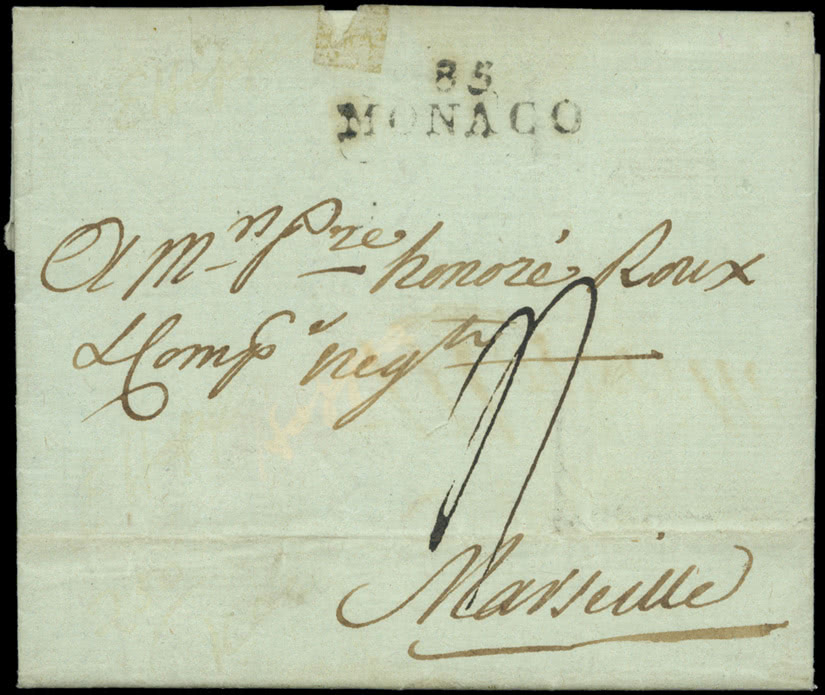 85
MONACO
A Mrn Pre honoré Roux
& Compe negts
Marseille